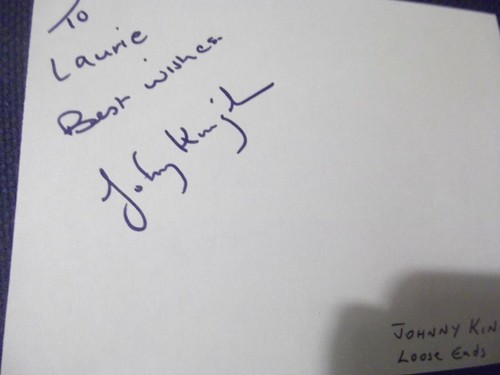 To
Laurie
Best wishes
Johnny Knight
JOHNNY KIN
Loose Ends